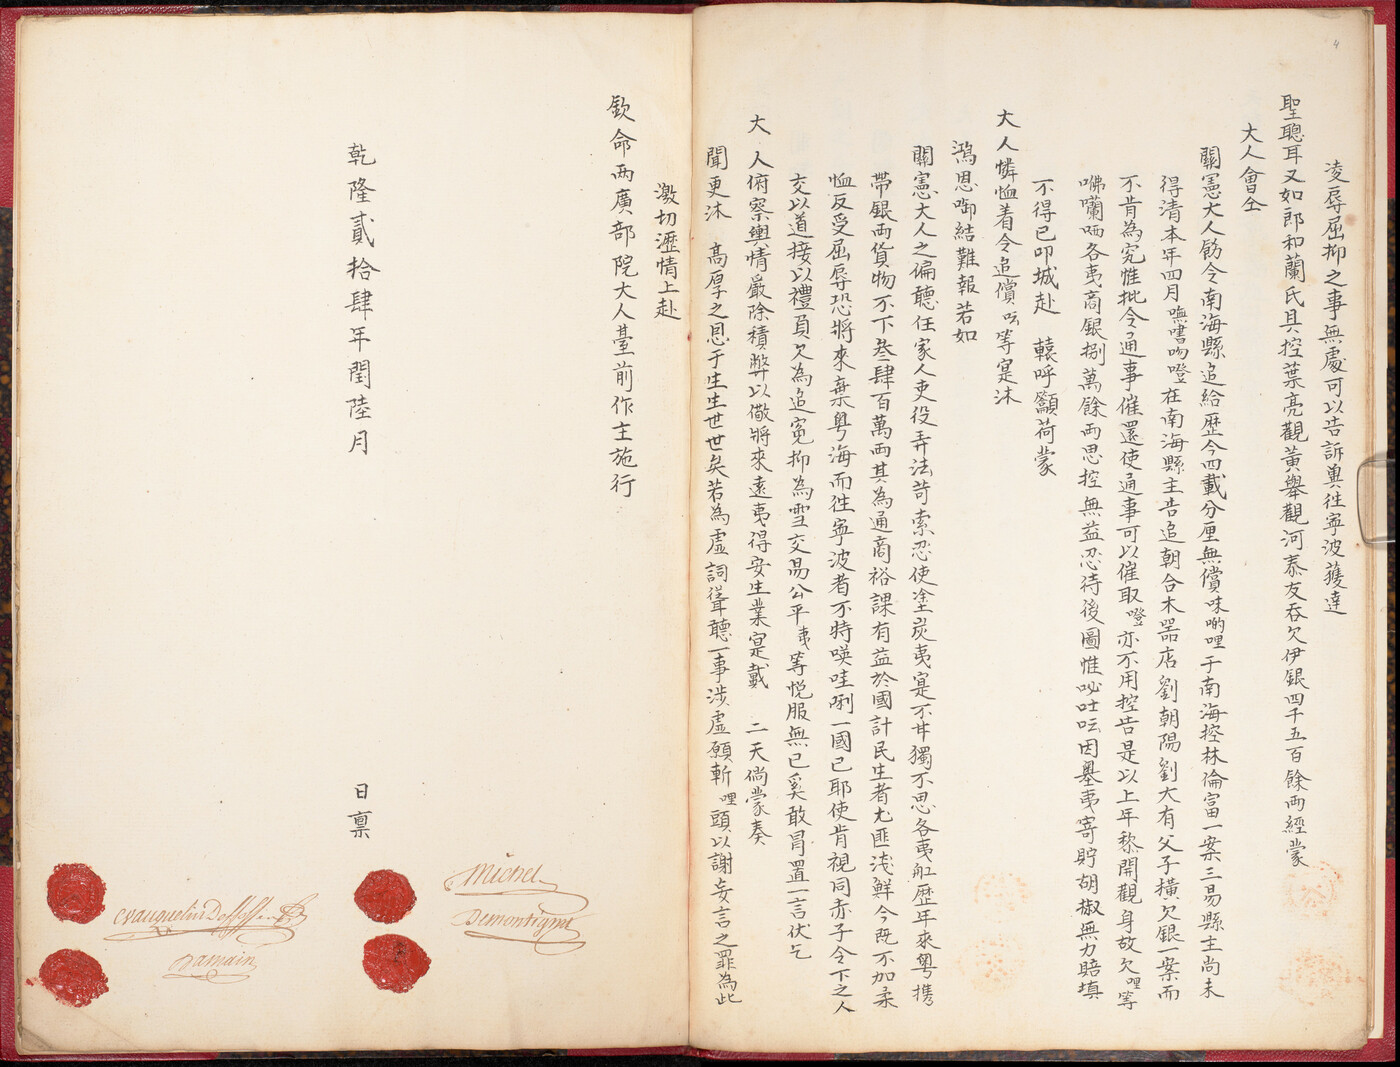 4
凌辱屈抑之事無處可以告訴輿徃寧波獲達
聖聰耳又如郎和蘭氏具控葉亮觀黃舉觀河泰友吞欠伊銀四千五百餘両經蒙
大人會仝
關憲大人飭令南海縣追給歷今四載分厘無償㖿喲哩于南海控林倫富一案三易縣主尚未
得清本年四月嘸嘧吻噔在南海縣主告追朝合木噐店劉朝陽劉大有父子橫欠銀一案而
不肯為究惟批令通事催還使通事可以催取噔亦不用控告是以上年黎開觀身故欠哩等
咈囒哂各夷商銀捌萬餘両思控無益忍待後圖惟吆吐呍因墨夷寄貯胡椒無力賠填
不得已叩城赴 轅呼籲荷蒙
大人憐恤着令追償呍等寔沐
鴻恩啣結難報若如
關憲大人之偏聽任家人吏役弄法苛索忍使塗炭夷寔不甘獨不思各夷舡歷年來粵携
帶銀両貨物不下叁肆百萬両其為通商裕課有益於國計民生者尤匪淺鮮今既不加柔
恤反受屈辱恐將來棄粵海而徃寧波者不特㗲哇唎一國已耶使肯視同赤子令下之人
交以道接以禮負欠為追寃抑為雪交昜公平夷等悦服無已奚敢冒置一言伏乞
大人俯察輿情嚴除積弊以儆將來遠夷得安生業寔戴 二天倘蒙奏
聞更沐 髙厚之恩于生生世世矣若為虛詞聳聽一事涉虛願斬哩頭以謝妄言之罪為此
激切瀝情上赴
欽命両廣部院大人臺前作主施行
乾隆貳拾肆年閏陸月
日禀
Michel
Demontigni
Vauquelin
Damain